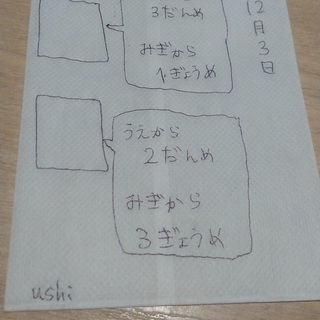 12月3日
3だんめ
みぎから
1ぎょうめ
うえから
2だんめ
みぎから
3ぎょうめ
ushi